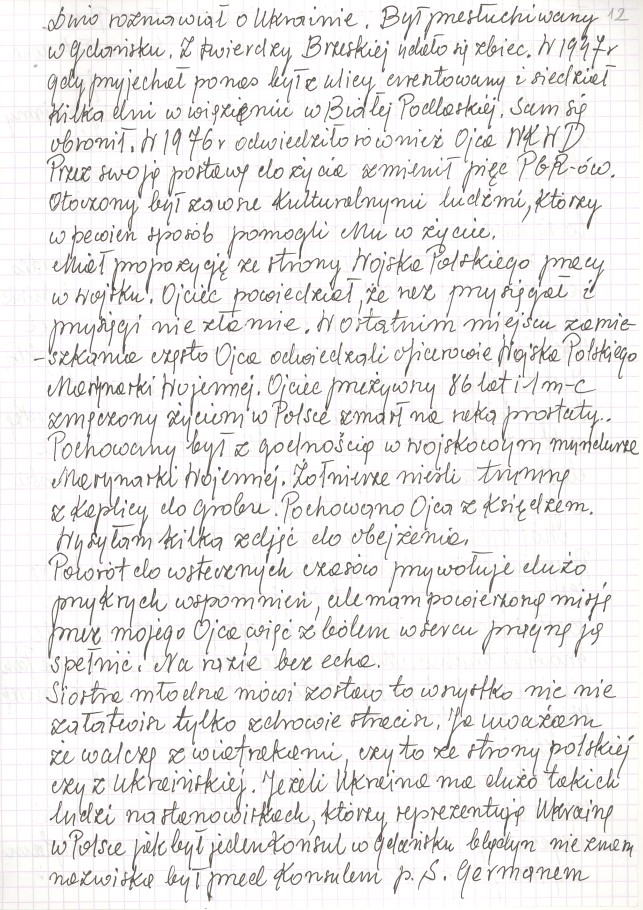 12
Dużo rozmawiał o Ukrainie. Był przesłuchiwany
w Gdańsku. Z twierdzy Brzeskiej udało się zbiec. W 1947 r
gdy przyjechał po nas był z ulicy arentowany i siedział
kilka dni w więzieniu w Białej Podlaskiej. Sam się
obronił. W 1976 r odwiedziło również Ojca NKWD
Przez swoję postawę do życia zmienił pięć PGR-ów.
Otoczony był zawsze kulturalnymi ludźmi, którzy
w pewien sposób pomogli Mu w życiu.
Miał propozycję ze strony Wojska Polskiego pracy
w wojsku. Ojciec powiedział, że raz przysięgał i
przysięgi nie złamie. W ostatnim miejscu zamie-
-szkania często Ojca odwiedzali oficerowie Wojska Polskiego
Marynarki Wojennej. Ojciec przeżywszy 86 lat i 1 m-c
zmęczony życiem w Polsce zmarł na raka prostaty..
Pochowany był z godnością w wojskowym mundurze
Marynarki Wojennej. Żołnierze nieśli trumnę
z Kaplicy do grobu. Pochowano Ojca z Księdzem.
Wysyłam kilka zdjęć do obejżenia.
Powrót do wstecznych czasów przywołuje dużo
przykrych wspomnień, ale mam powierzoną misję
przez mojego Ojca więc z bólem w sercu pragnę ją
spełnić. Na razie bez echa.
Siostra młodsza mówi zostaw to wszystko nic nie
załatwisz tylko zdrowie stracisz. Ja uważam
że walczę z wiatrakami, czy to ze strony polskiej
czy z Ukraińskiej. Jeżeli Ukraina ma dużo takich
ludzi na stanowiskach, którzy reprezentują Ukrainę
w Polsce jak był jeden Konsul w Gdańsku blędyn nie znam
nazwiska był przed Konsulem p. S. Germanem